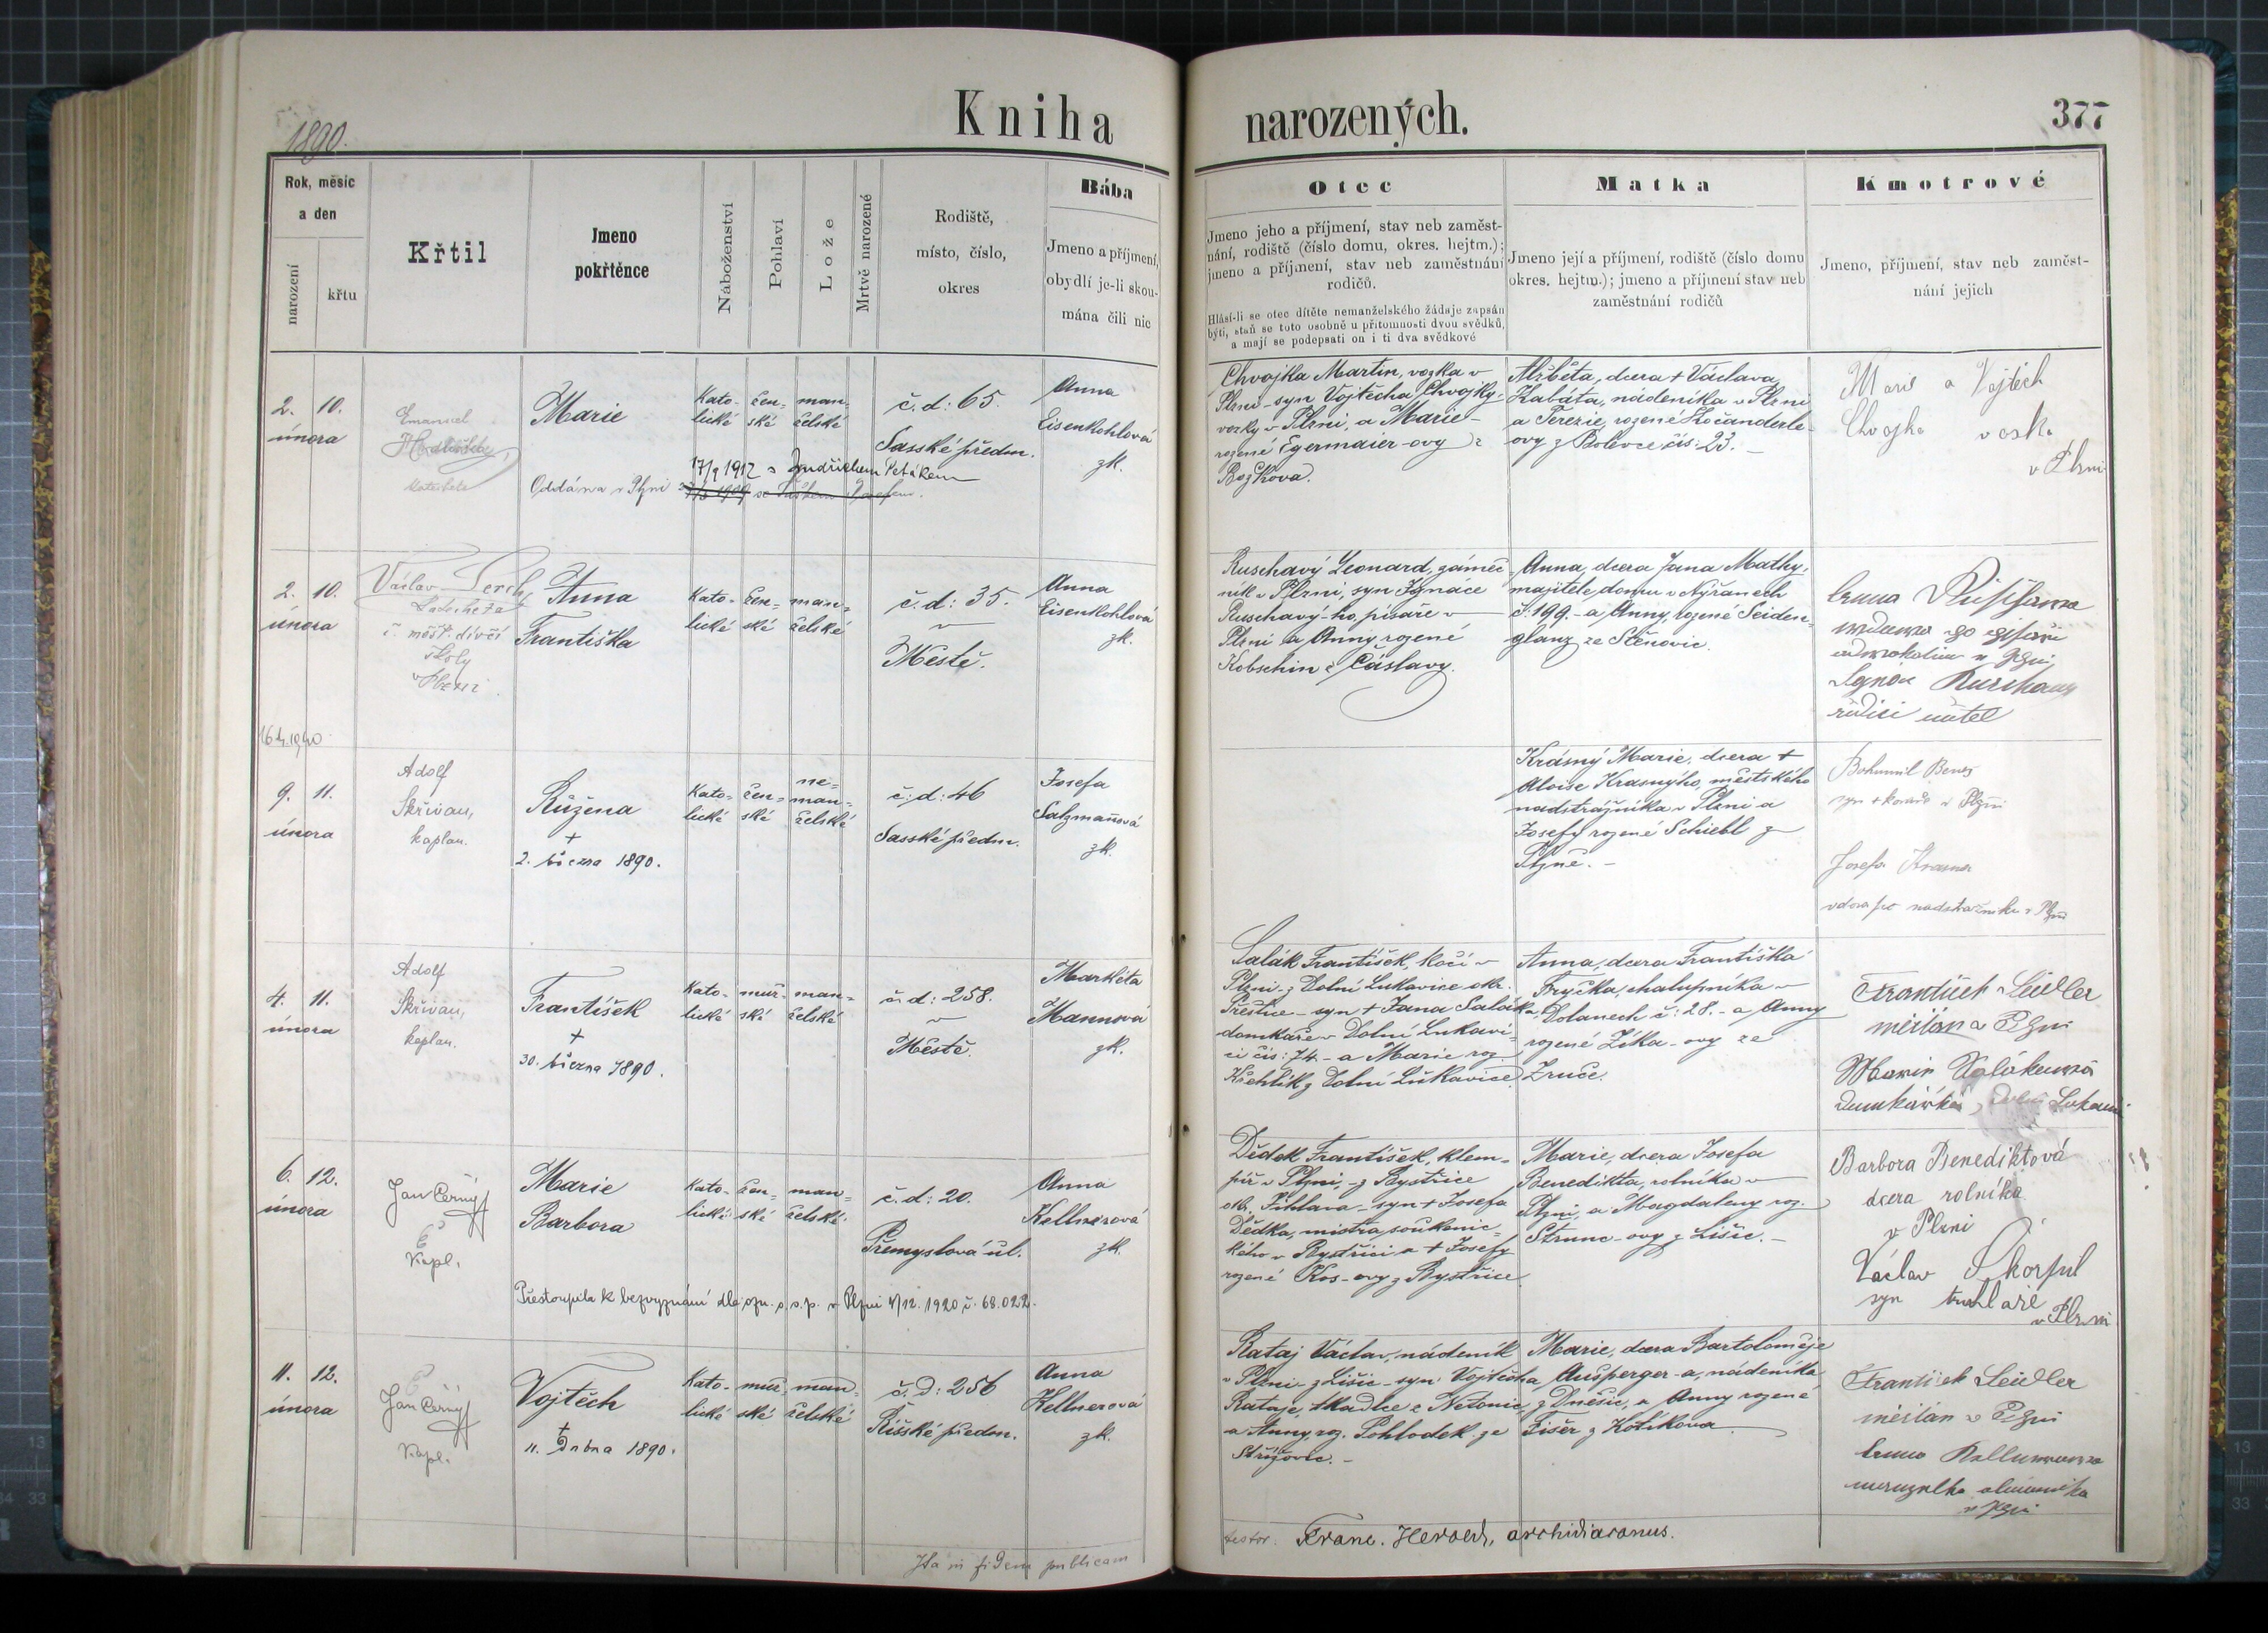 1890.
Kniha narozených.
377
Rok, měsíc
a den
narození
křtu
Křtil
Jmeno
pokřtěnce
Náboženství
Pohlaví
Lože
Mrtvě narozené
Rodiště,
místo, číslo,
okres
Bába
Jmeno a příjmení,
obydlí je-li skou-
mána čili nic
Otec
Jmeno jeho a příjmení, stav neb zaměst-
nání, rodiště (číslo domu, okres. hejtm.);
jmeno a příjmení, stav neb zaměstnání
rodičů.
Hlásí-li se otec dítěte nemanželského žádaje zapsán
býti, staň se toto osobně u přítomnosti dvou svědků,
a mají se podepsati on i ti dva svědkové
Matka
Jmeno její a příjmení, rodiště (číslo domu
okres. hejtm.); jmeno a příjmení stav neb
zaměstnání rodičů
Kmotrové
Jmeno, příjmení, stav neb zaměst-
nání jejich
2. 10.
února
Emanuel
Marie
Kato- žen- man-
lické ské želské
č. d: 65.
Sasské předm.
Anna
Eisenkohlová
zk.
17/9 1912 s Jindřichem Petákem
Oddána v Plzni
Chvojka Martin, vozka v
Plzni - syn Vojtěcha Chvojky,
vozky v Plzni, a Marie
rozené Egermaier-ovy z
Božkova.
Alžběta, dcera + Václava
Kabáta, nádeníka v Plzni
a Terezie, rozené Kočanderle-
ovy z Bolevce čís: 23. -
Marie a Vojtěch
Chvojka voska
v Plzni
2. 10.
února
Václav
č. měšt. dívčí
školy
v Plzni
Anna
Františka
Kato- žen- man-
lické ské želské
č. d: 35.
Městě.
Anna
Eisenkohlová
zk.
Ruschavý Leonard, zámeč-
ník v Plzni, syn Ignáce
Ruschavý-ho, písaře v
Plzni a Anny rozené
Kobschin z Čáslavy.
Anna, dcera Jana Mathy,
majitele domu v Nýřanech
č. 199. - a Anny, rozené Seiden-
glanz ze Stěnovic.
Ignác Ruschavy
řídící učitel
16.4.1940
9. 11.
února
Adolf
Skřivan,
kaplan.
Růžena
+
2. března 1890.
Kato- žen- ne-
man-
lické ské želské
č. d: 46
Sasské předm.
Josefa
Salzmanová
zk.
Krásný Marie, dcera +
Aloise Krásnýho, městského
nadstrážníka v Plzni a
Josefy rozené Schiebl z
Plzně. -
Bohumil Beneš
syn + kováře v Plzni
Josefa Krasna
vdova po nadstražniku v Plzni
4. 11.
února
Adolf
Skřivan,
kaplan.
František
+
30. března 1890.
Kato- muž- man-
lické ské želské
č. d: 258.
Městě.
Markéta
Mannová
zk.
Salák František, kočí v
Plzni z Dolní Lukavice okr.
Přeštice - syn + Jana Saláka,
domkáře v Dolní Lukavi-
ci čís: 74. - a Marie roz.
Křehlík z Dolní Lukavice.
Anna, dcera Františka
Fryčka, chalupníka v
Dolanech č: 28. - a Anny
rozené Zítka-ovy ze
Zruče.
František Seidler
měšťan v Plzni
6. 12.
února
Jan Černý
Kapl.
Marie
Barbora
Kato- žen- man-
lické ské želské.
č. d: 20.
Přemyslova ul.
Anna
Kellnerová
zk.
Přestoupila k bezvyznání dle ozn. o. s. p. v Plzni 4/12. 1920 č. 68.022.
Dědek František, klem-
píř v Plzni, - z Bystřice
okr. Jihlava - syn + Josefa
Dědka, mistra soukenic-
kého v Bystřici a + Josefy
rozené Kos-ovy z Bystřice.
Marie, dcera Josefa
Benedikta, rolníka v
Plzni, a Magdaleny roz.
Strunc-ovy z Lišic. -
Barbora Benediktová
dcera rolníka
v Plzni
Václav Škorpil
syn truhláře
v Plzni
11. 12.
února
Jan Černý
Kapl.
Vojtěch
+
11. Dubna 1890.
Kato- muž- man-
lické ské želské
č. d: 256
Říšské předm.
Anna
Kellnerová
zk.
Rataj Václav, nádeník
v Plzni - z Lišic - syn Vojtěcha
Rataje, tkadlce z Netonic,
a Anny, roz. Pohlodek ze
Střížovic. -
Marie, dcera Bartoloměje
Aušperger-a, nádeníka
z Dnešic, a Anny rozené
Fišer z Kotíkova.
František Seidler
měšťan v Plzni
v Plzni
Ita in fidem publicam
testor: Franc. Herold, archidiaconus.